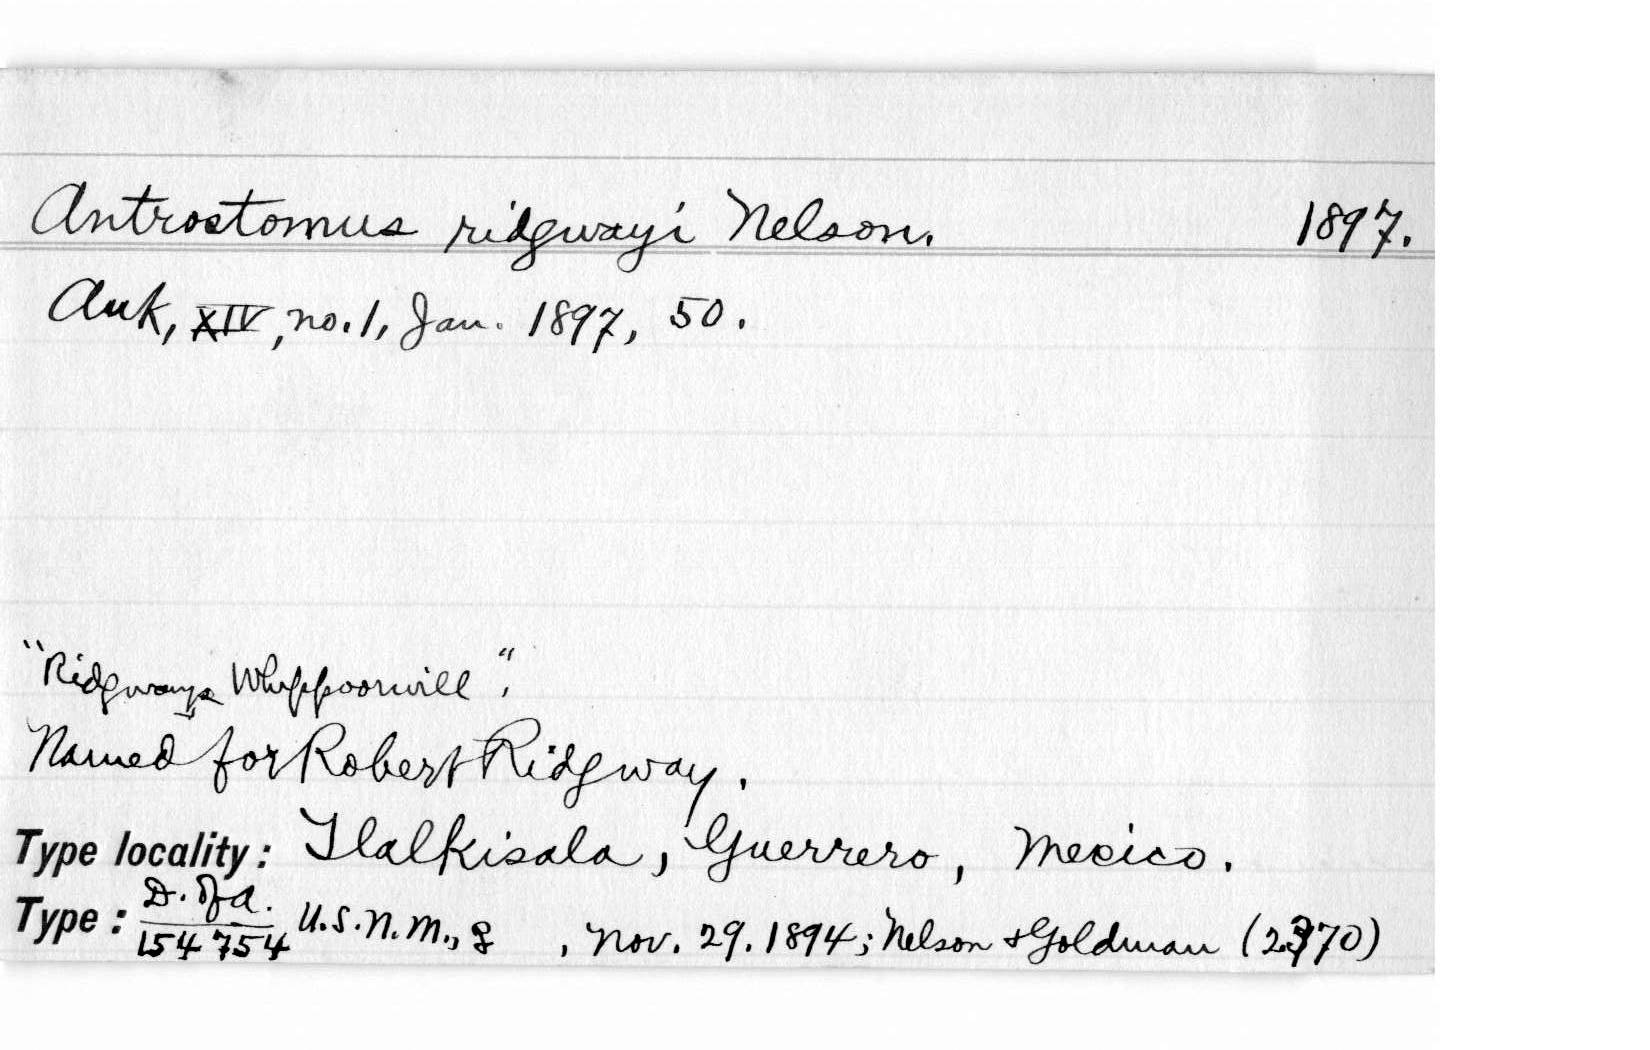 Antrostomus ridgwayi Nelson. 1897.
Auk, XIV, no. 1, Jan. 1897, 50.
"Ridgways Whippoorwill".
Named for Robert Ridgway.
Type locality: Tlalkisala, Guerrero, Mexico.
Type: D. of A. 154754 U.S.N.M., , Nov. 29. 1894; Nelson & Goldman (2370)